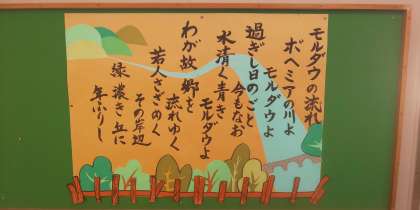 モルダウの流れ
ボヘミアの川よ
モルダウよ
過ぎし日のごと
今もなお
水清く青き
モルダウよ
わが故郷を
流れゆく
若人さざめく
その岸辺
緑濃き丘に
年ふりし